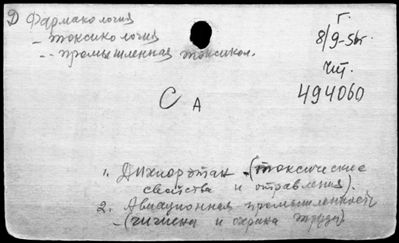 Д Фармакология
- токсикология
-- промышленная токсикол.
Г.
8/9-56г.
чит.
494060
С А
1. Дихлорэтан - (токсические
свойства и отравления).
2. Авиационная промышленность
- (гигиена и охрана труда)